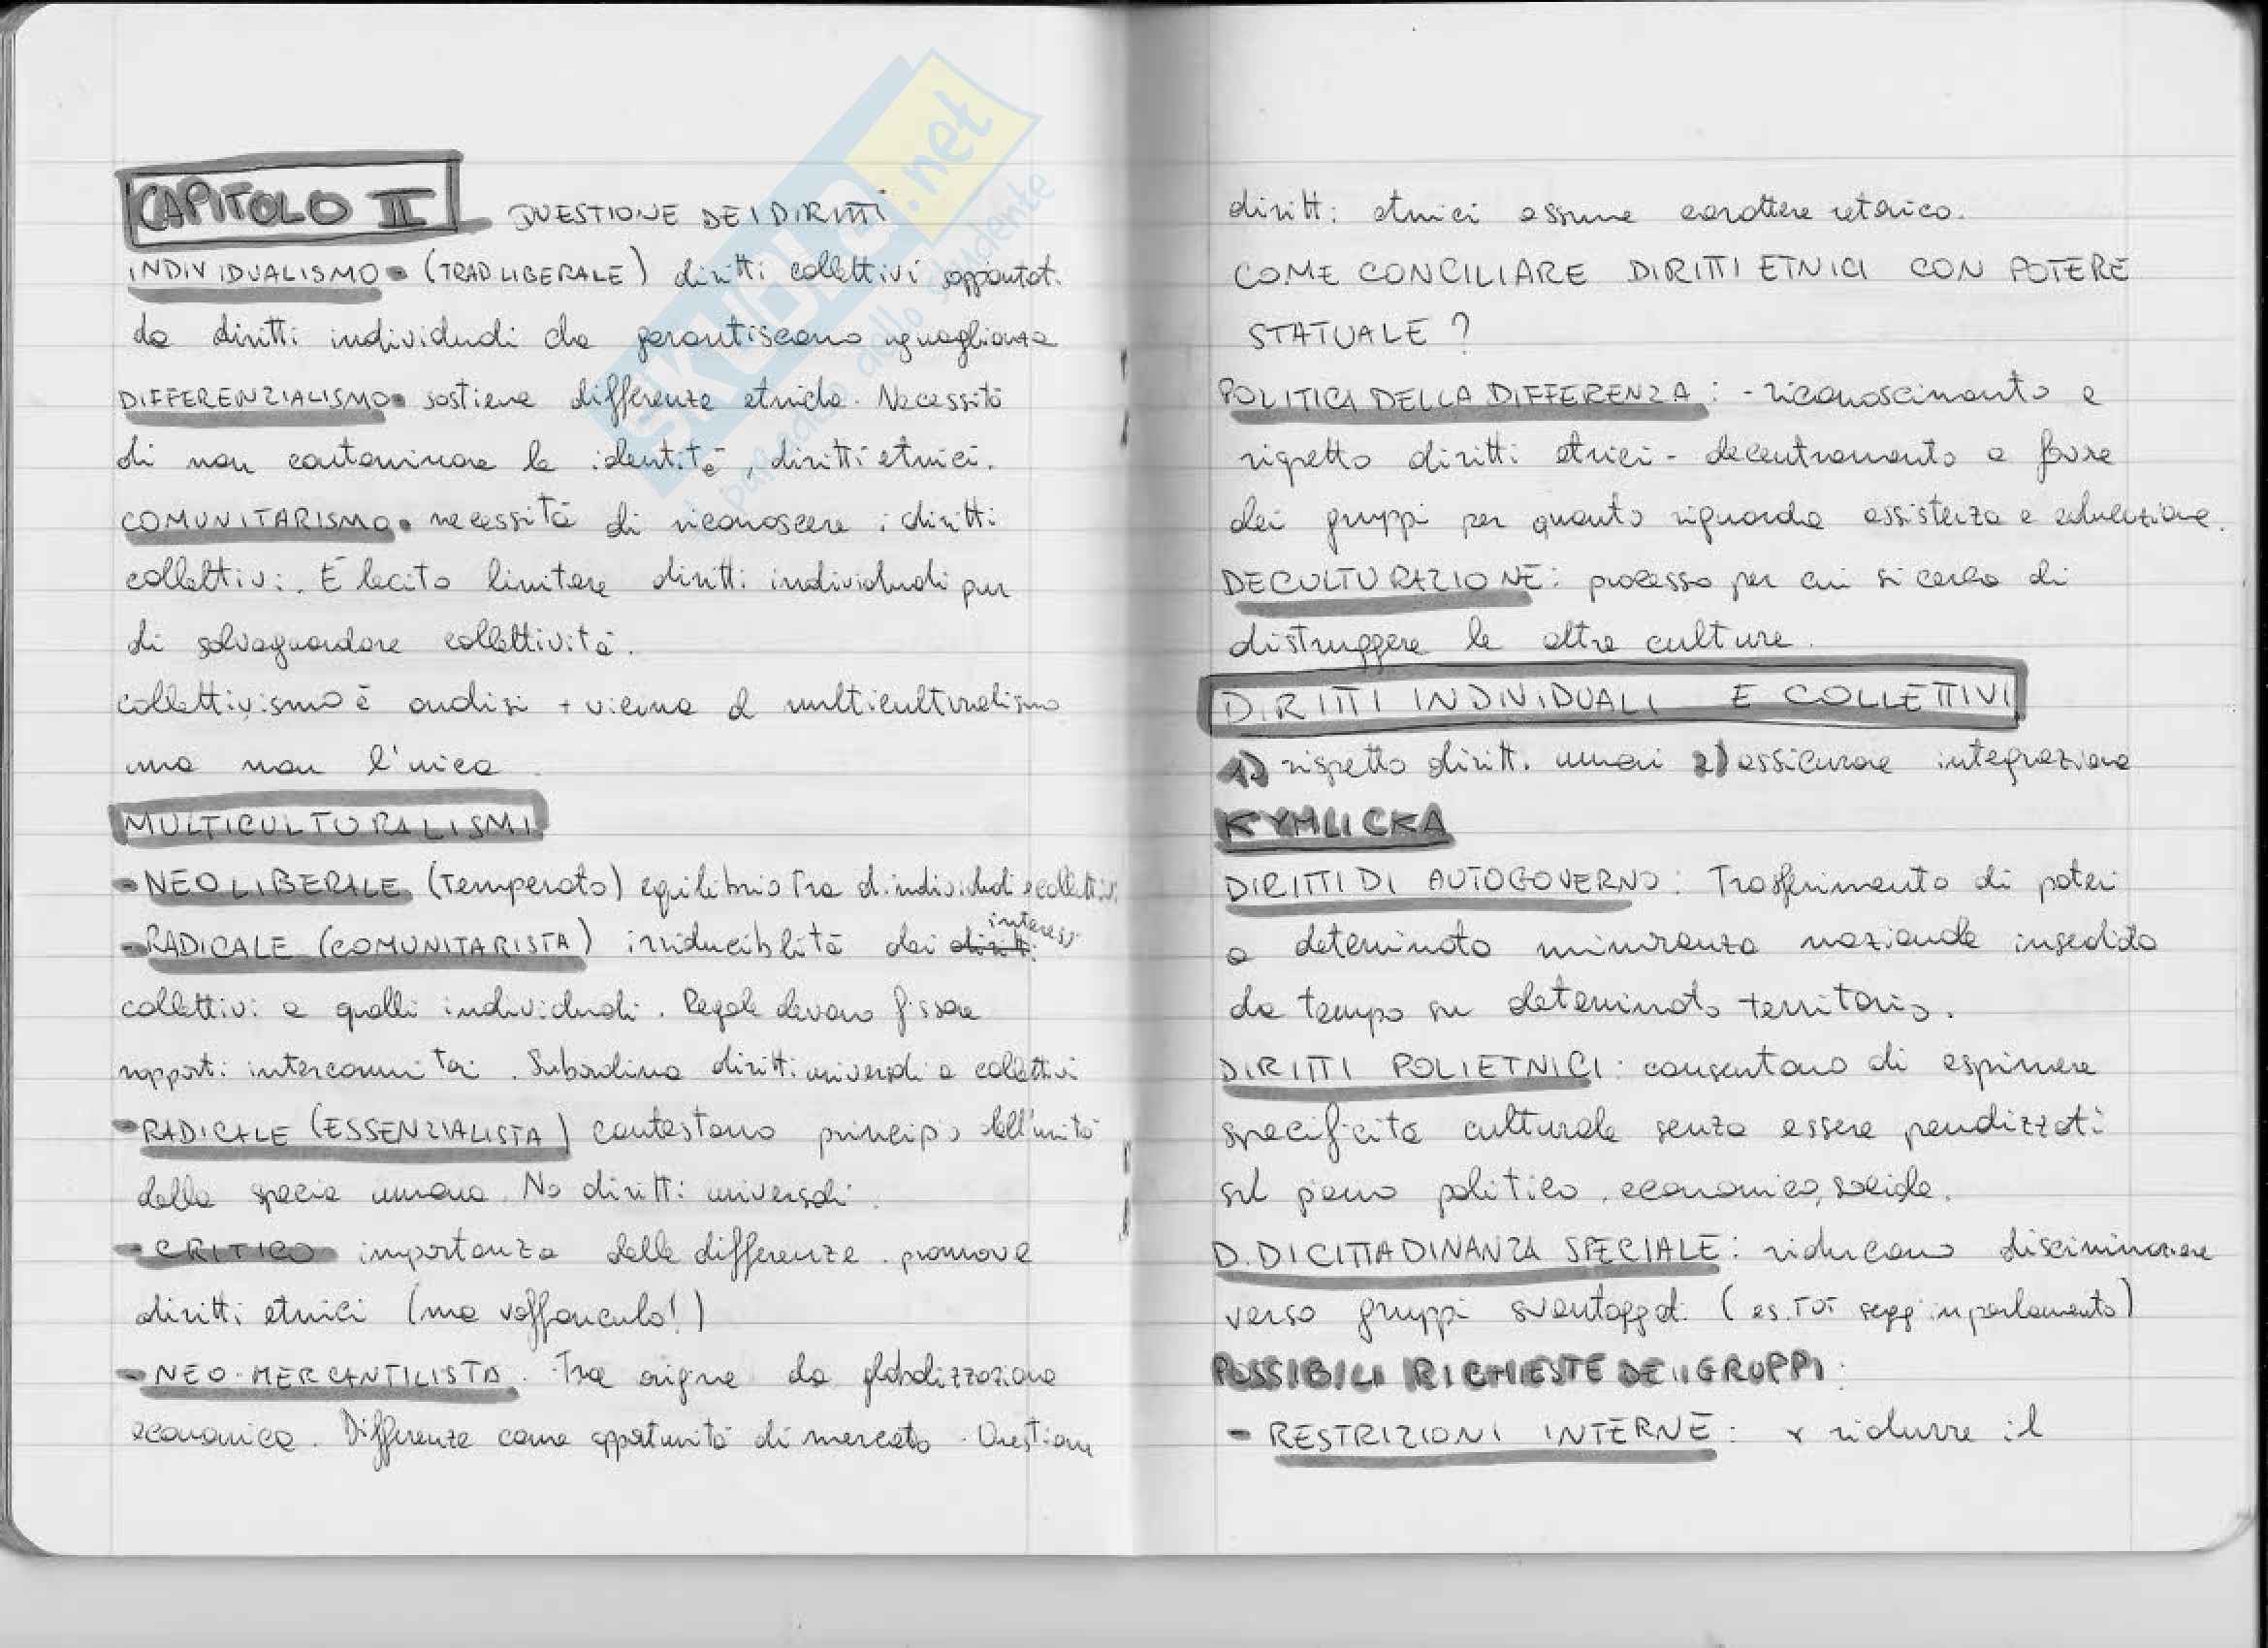 CAPITOLO II QUESTIONE DEI DIRITTI
INDIVIDUALISMO • (TRAD LIBERALE) diritti collettivi rappᵣᵉsentati
da diritti individuali che garantiscono uguaglianza
DIFFERENZIALISMO • sostiene differenze etniche. Necessità
di non contaminare le identità, diritti etnici.
COMUNITARISMO • necessità di riconoscere i diritti
collettivi. È lecito limitare diritti individuali pur
di salvaguardare collettività.
collettivismo è analisi + vicina al multiculturalismo
ma non l'unica
MULTICULTURALISMI
- NEOLIBERALE (Temperato) equilibrio tra d. individuali e collettivi
- RADICALE (COMUNITARISTA) irriducibilità dei diritti interessi
collettivi a quelli individuali. Regole devono fissare
rapporti intercomunitari. Subordina diritti universali a collettivi
- RADICALE (ESSENZIALISTA) contestano principio dell'unità
della specie umana. No diritti universali.
- CRITICO importanza delle differenze. promove
diritti etnici (ma vaffanculo!)
- NEO-MERCANTILISTA. Trae origine da globalizzazione
economica. Differenze come opportunità di mercato. Questione
diritti etnici assume carattere retorico.
COME CONCILIARE DIRITTI ETNICI CON POTERE
STATUALE?
POLITICA DELLA DIFFERENZA: - riconoscimento e
rispetto diritti etnici - decentramento a favore
dei gruppi per quanto riguarda assistenza e educazione.
DECULTURAZIONE: processo per cui si cerca di
distruggere le altre culture.
DIRITTI INDIVIDUALI E COLLETTIVI
1) rispetto diritti umani 2) assicurare integrazione
KYMLICKA
DIRITTI DI AUTOGOVERNO: Trasferimento di poteri
a determinata minoranza nazionale insediata
da tempo su determinato territorio.
DIRITTI POLIETNICI: consentono di esprimere
specificità culturale senza essere penalizzati
sul piano politico, economico, sociale.
D. DI CITTADINANZA SPECIALE: riducono discriminazione
verso gruppi svantaggiati (es. TOT seggi in parlamento)
POSSIBILI RICHIESTE DEI GRUPPI:
- RESTRIZIONI INTERNE: x ridurre il
SKUOLA.net
il paradiso dello studente